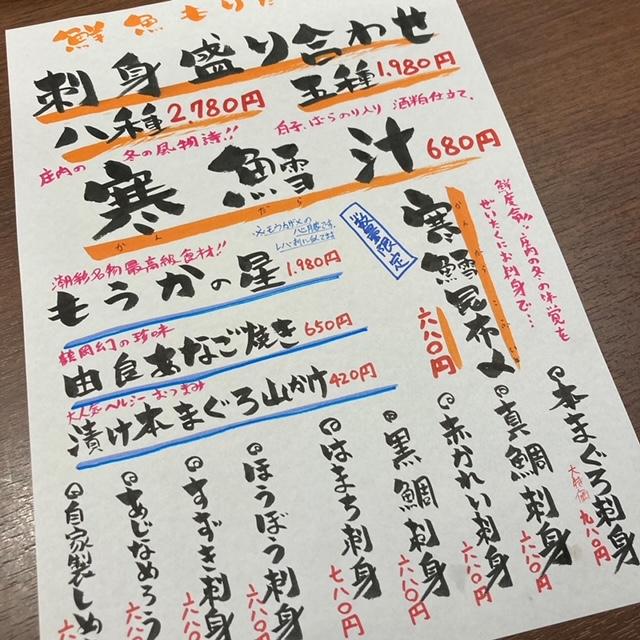 鮮魚もりだ
刺身盛り合わせ
八種2.780円
五種1.980円
庄内の 冬の風物詩!! 白子、ばらのり入り 酒粕仕立て。
寒鱈汁680円
かんだら
数量限定
鮮度命!!庄内の冬の味覚を
ぜいたくにお刺身で…
寒鱈昆布〆
六八〇円
※もうかザメの
心臓です。
レバ刺に似てます
潮彩名物最高級食材!!
もうかの星1.980円
鶴岡幻の珍味
由良あなご焼き650円
大人気ヘルシーおつまみ
漬け本まぐろ山かけ420円
本まぐろ刺身
大特価九八〇円
真鯛刺身
六八〇円
赤かれい刺身
六八〇円
黒鯛刺身
六八〇円
はまち刺身
七八〇円
ほうぼう刺身
六八〇円
すずき刺身
六八〇円
あじなめろう
六
自家製しめ
六